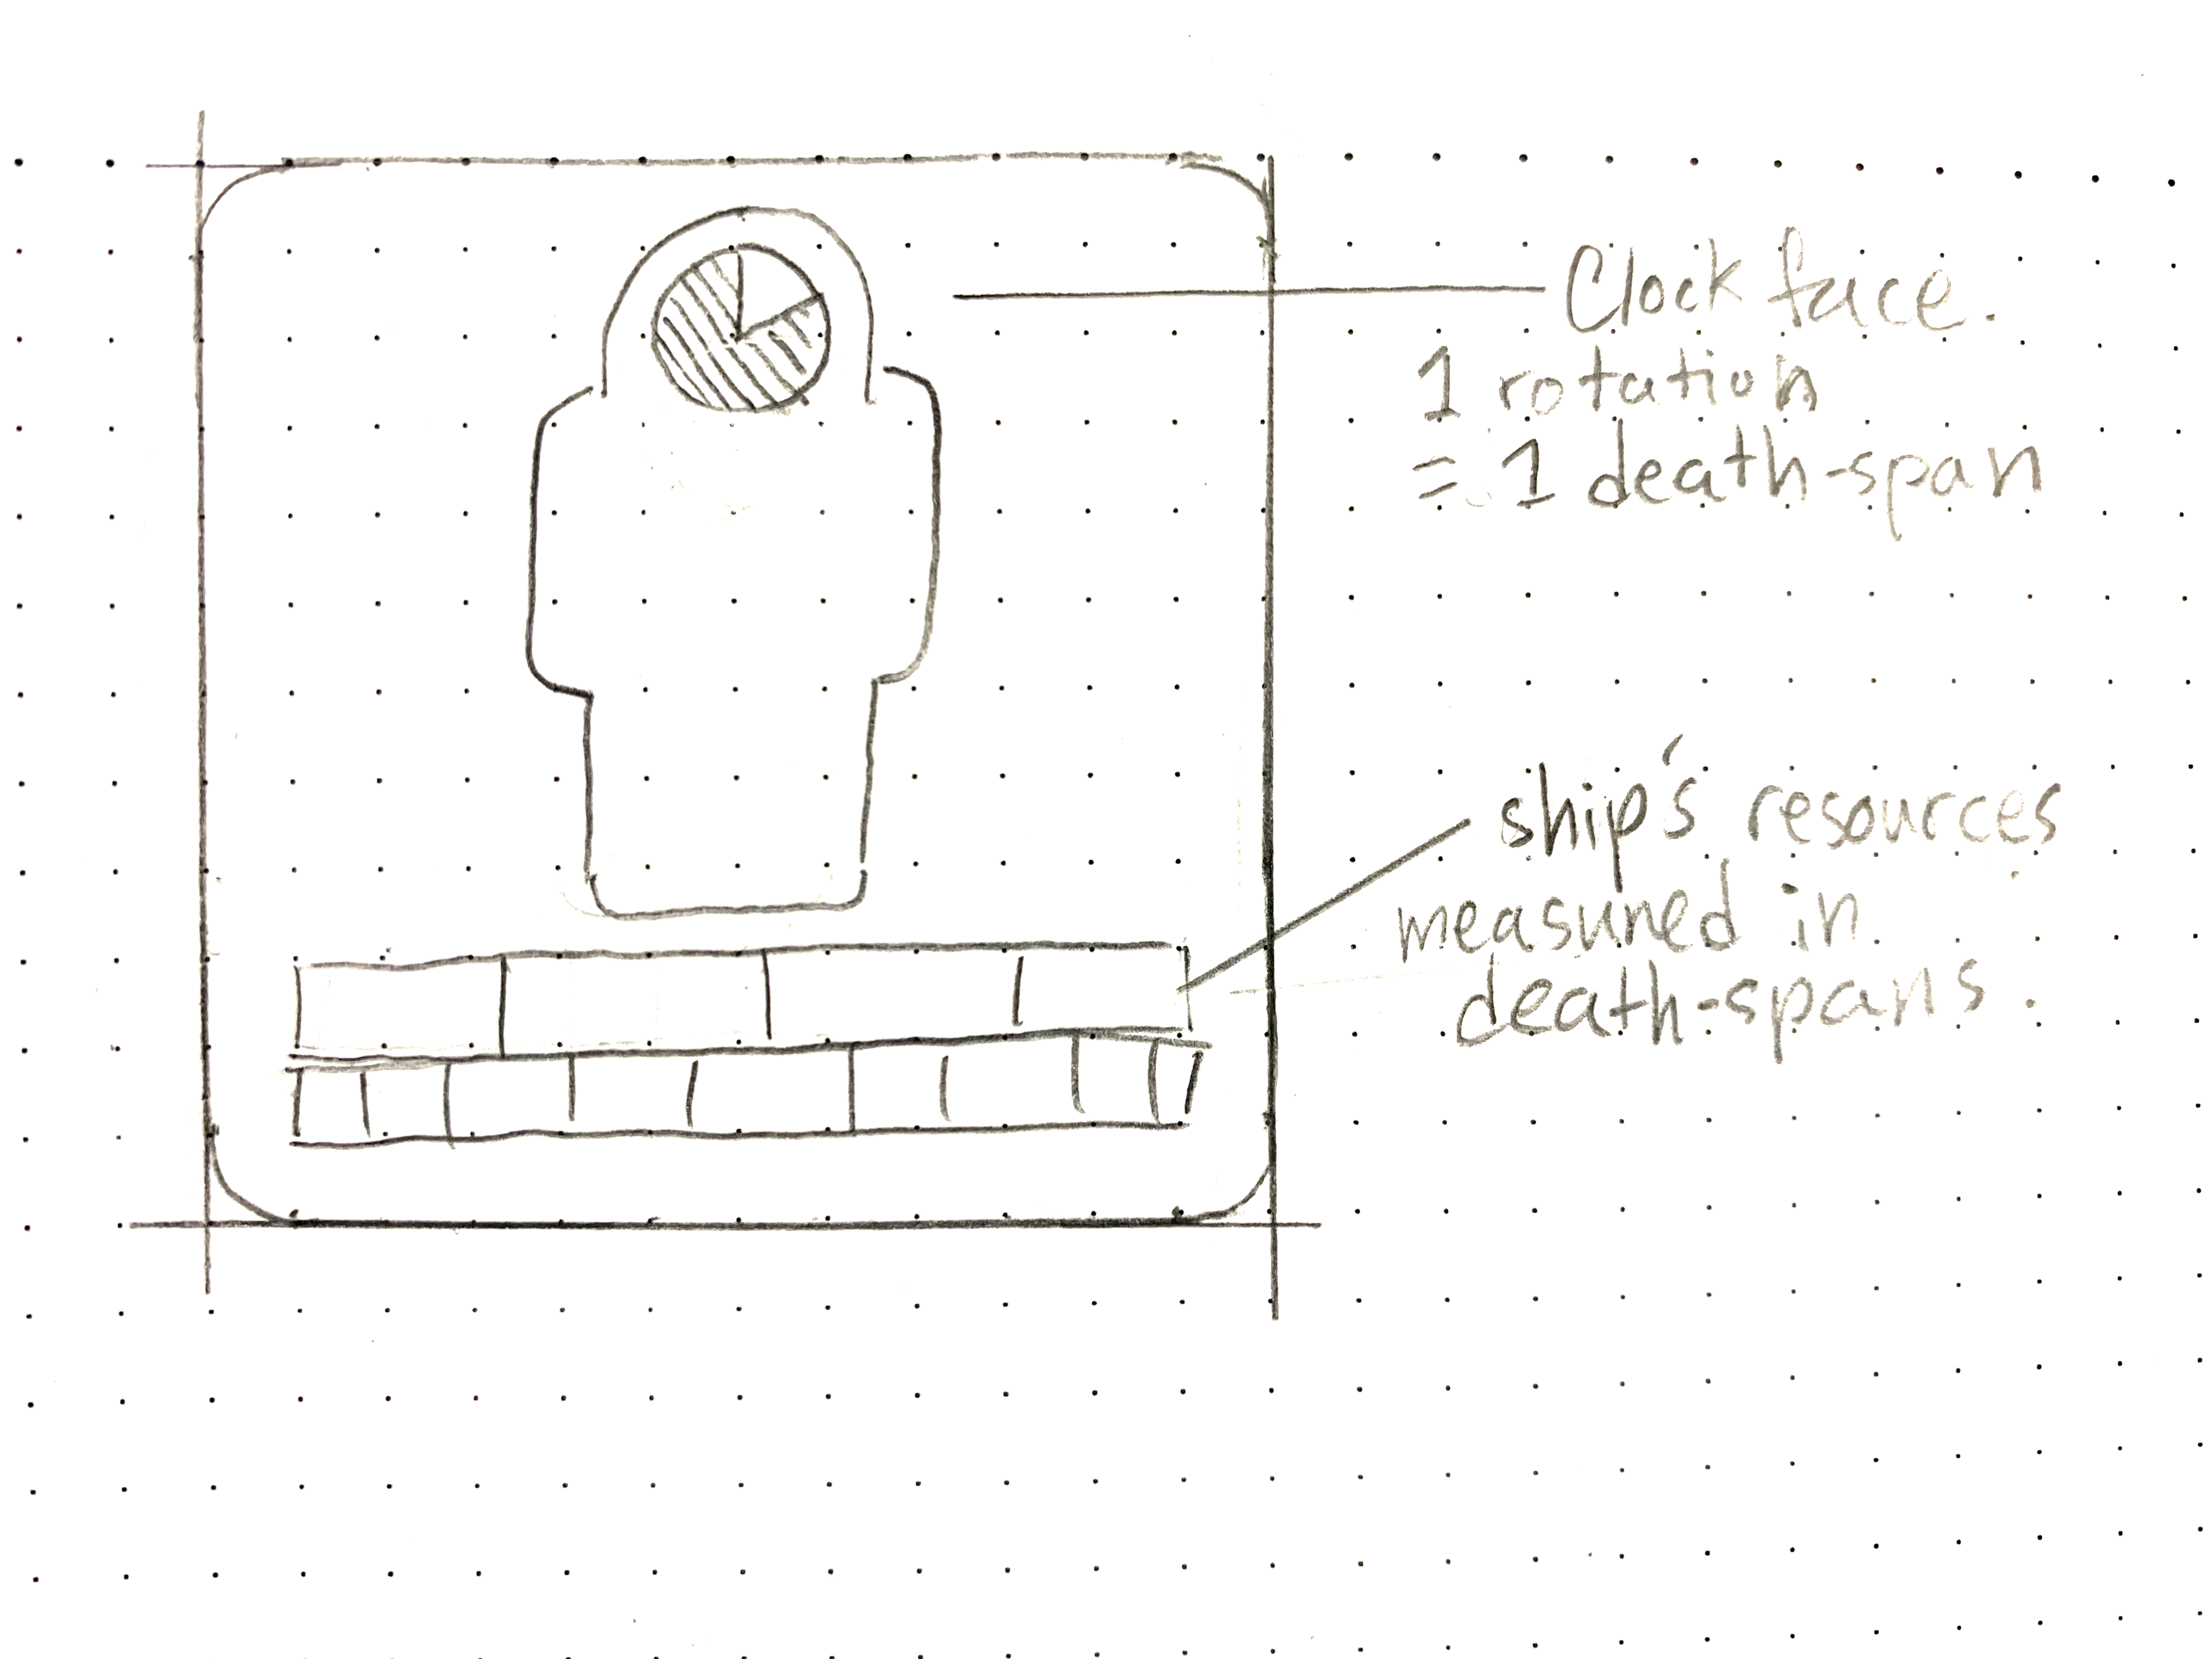 Clock face.
1 rotation
= 1 death-span
ship's resources
measured in
death-spans.